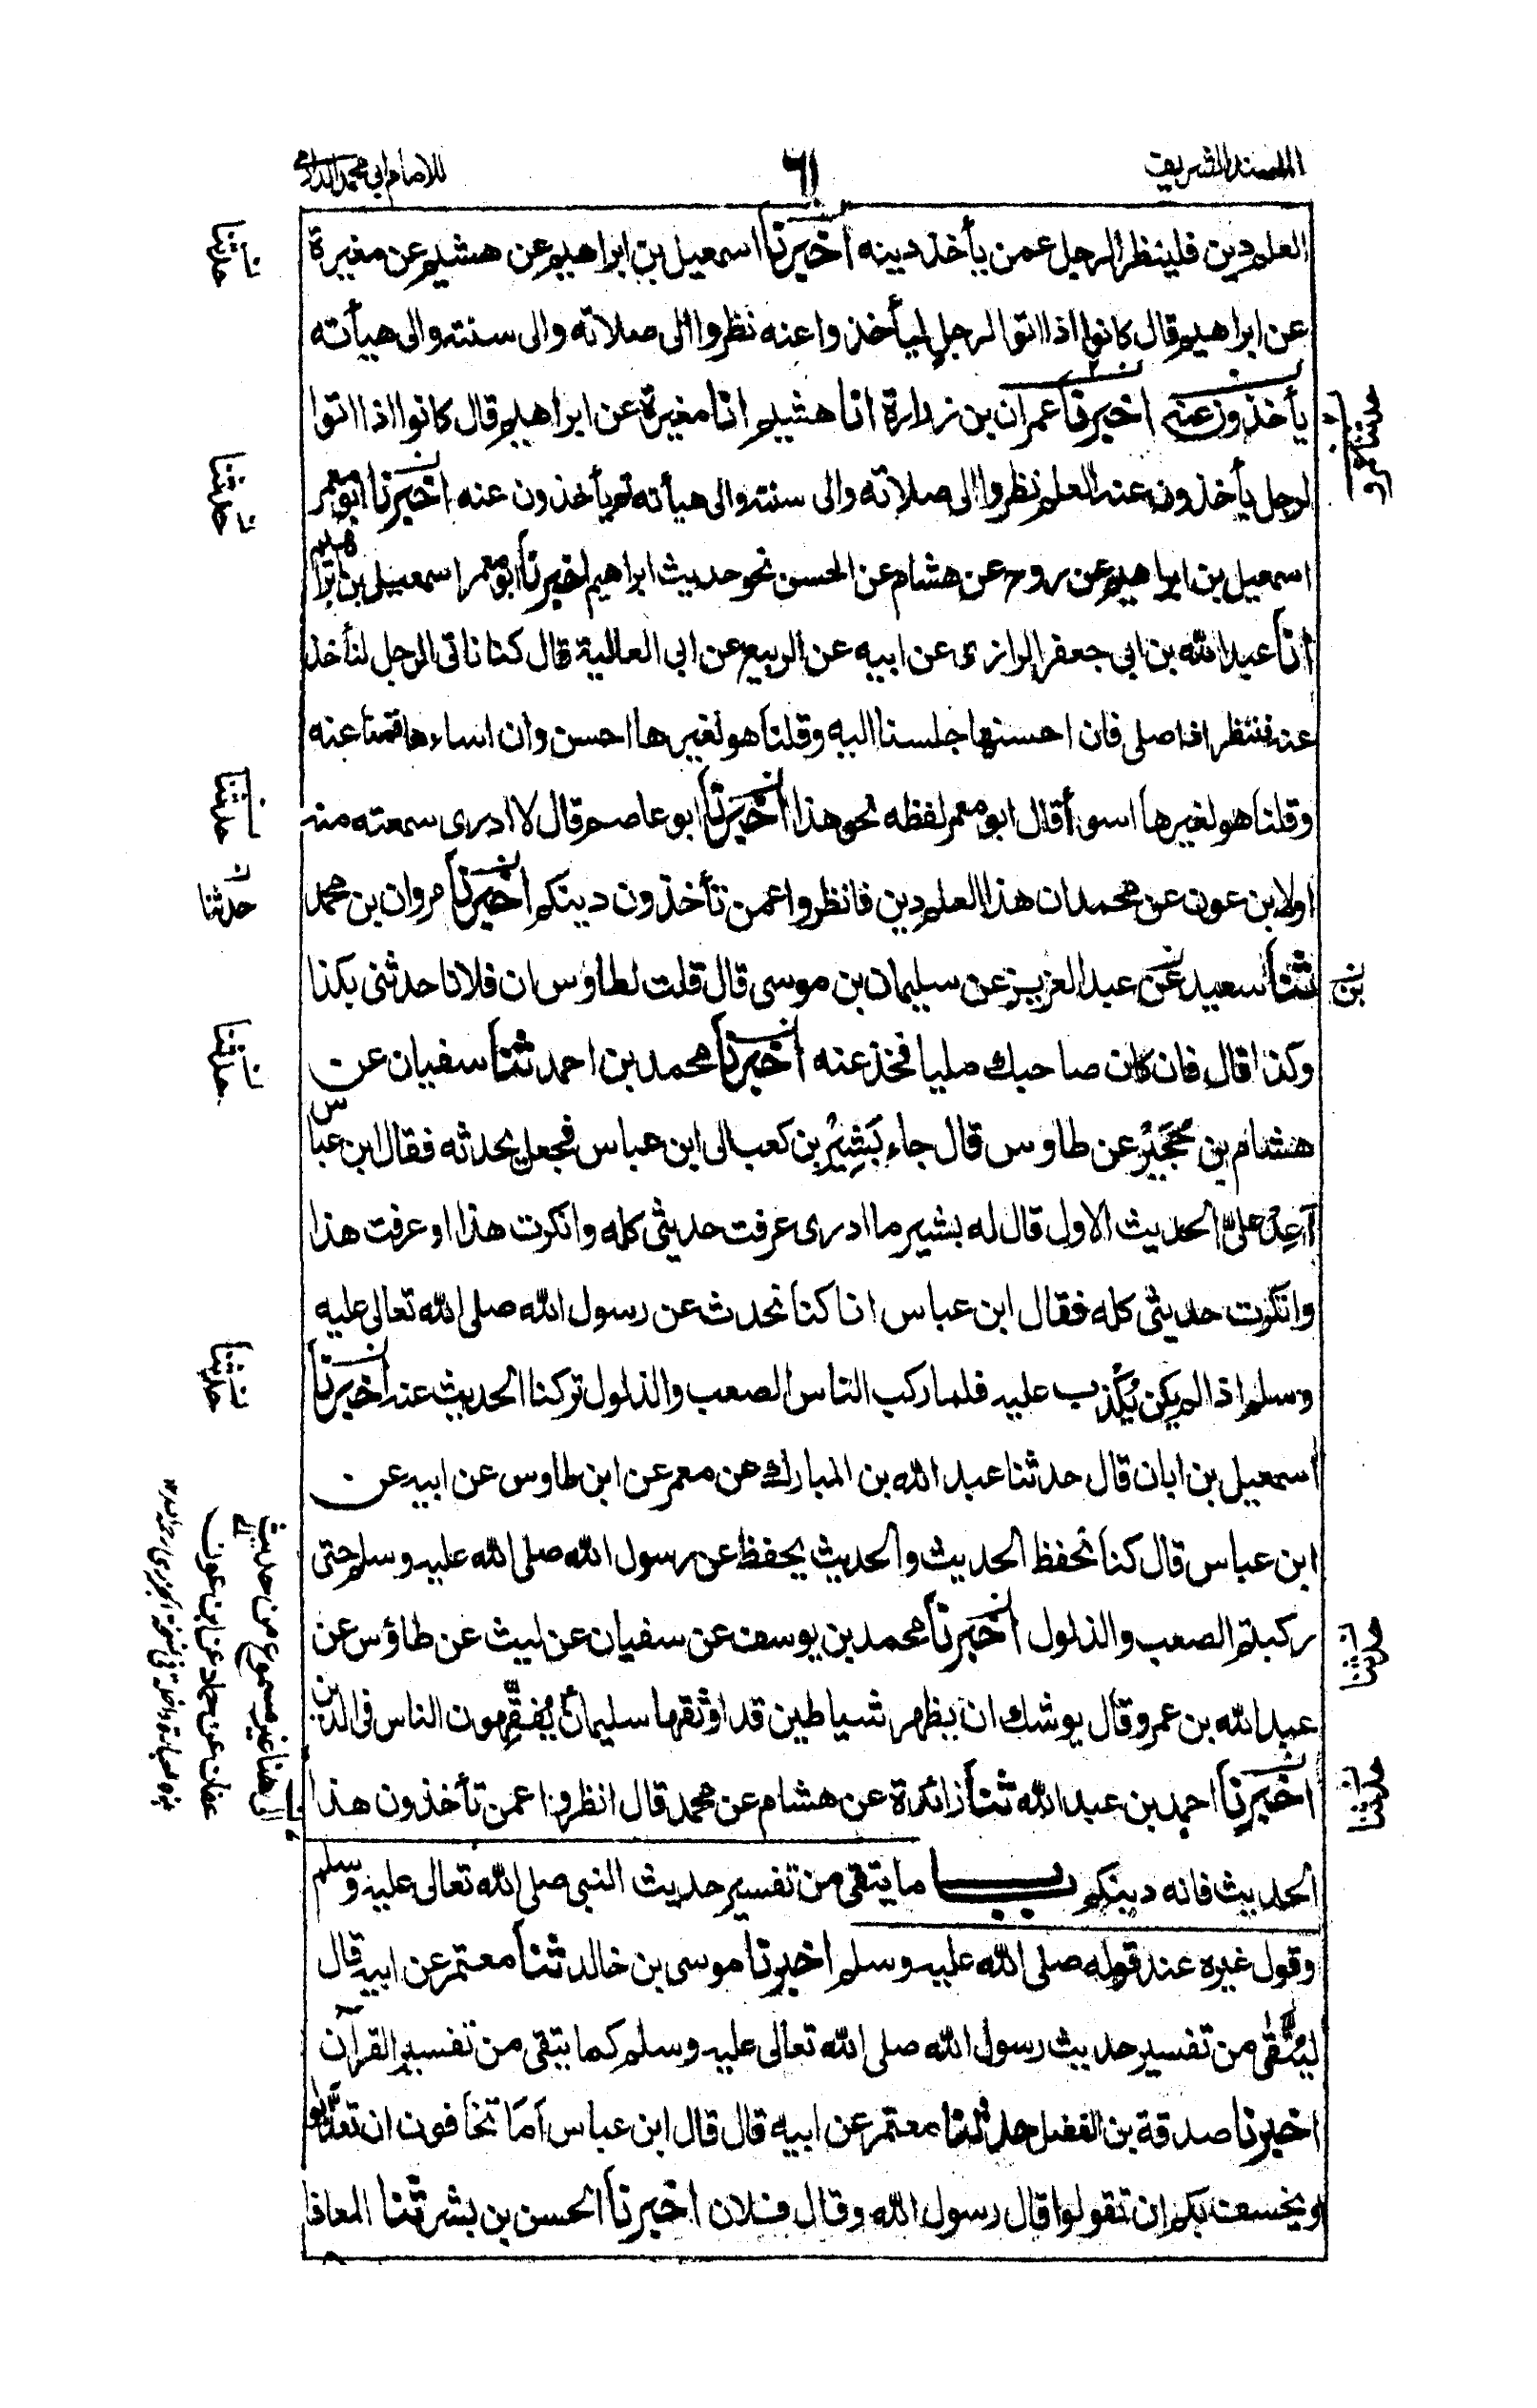 المسند الشريف
٦١
للامام ابي محمد الدارمي
العلم دين فلينظر الرجل عمن يأخذ دينه اخبرنا اسمعيل بن ابراهيم عن هشيم عن مغيرة
عن ابراهيم قال كانوا اذا اتوا الرجل ليأخذوا عنه نظروا الى صلاته والى سنته والى هيأته
يأخذون عنه اخبرنا عمران بن زرارة انا هشيم انا مغيرة عن ابراهيم قال كانوا اذا اتوا
لرجل يأخذون عنه العلم نظروا الى صلاته والى سنته والى هيأته ثم يأخذون عنه اخبرنا ابو معمر
اسمعيل بن ابراهيم عن روح عن هشام عن الحسن نحو حديث ابراهيم اخبرنا ابو معمر اسمعيل بن ابراهيم
انا عبد الله بن ابي جعفر الرازى عن ابيه عن الربيع عن ابي العالية قال كنا ناتى الرجل لنأخذ
عنه فننظر اذا صلى فان احسنها جلسنا اليه وقلنا هو لغيرها احسن وان اساءها قمنا عنه
وقلنا هو لغيرها اسوأ قال ابو معمر لفظه نحو هذا اخبرنا ابو عاصم قال لا ادرى سمعته منه
اولا بن عون عن محمد ان هذا العلم دين فانظروا عمن تأخذون دينكم اخبرنا مروان بن محمد
ثنا سعيد عن عبد العزيز عن سليمان بن موسى قال قلت لطاؤس ان فلانا حدثنى بكذا
وكذا قال فان كان صاحبك مليا فخذ عنه اخبرنا محمد بن احمد ثنا سفيان عن
هشام بن حُجَيْرٍ عن طاوس قال جاء بَشِيْرُ بن كعب الى ابن عباس فجعل يحدثه فقال ابن عباس
اَعِدْ علىّ الحديث الاول قال له بشير ما ادرى عرفت حديثى كله وانكرت هذا او عرفت هذا
وانكرت حديثى كله فقال ابن عباس انا كنا نحدث عن رسول الله صلى الله تعالى عليه
وسلم اذ لم يكن يُكْذَب عليه فلما ركب الناس الصعب والذلول تركنا الحديث عنه اخبرنا
اسمعيل بن ابان قال حدثنا عبد الله بن المبارك عن معمر عن ابن طاوس عن ابيه عن
ابن عباس قال كنا نحفظ الحديث والحديث يحفظ عن رسول الله صلى الله عليه وسلم حتى
ركبتم الصعب والذلول اخبرنا محمد بن يوسف عن سفيان عن ليث عن طاؤس عن
عبد الله بن عمرو قال يوشك ان يظهر شياطين قد اوثقها سليمان يُفَقِّهون الناس فى الدين
اخبرنا احمد بن عبد الله ثنا زائدة عن هشام عن محمد قال انظروا عمن تأخذون هذا
الحديث فانه دينكم بـــاب ما يتقى من تفسير حديث النبى صلى الله تعالى عليه وسلم
وقول غيره عند قوله صلى الله عليه وسلم اخبرنا موسى بن خالد ثنا معتمر عن ابيه قال
ليُتَّقى من تفسير حديث رسول الله صلى الله تعالى عليه وسلم كما يتقى من تفسير القرآن
اخبرنا صدقة بن الفضل حدثنا معتمر عن ابيه قال قال ابن عباس اَمَا تخافون ان تعذَّبوا
او يخسف بكم ان تقولوا قال رسول الله وقال فلان اخبرنا الحسن بن بشر ثنا المعافا
حدثنا
حدثنا
حدثنا
حدثنا
حدثنا
حدثنا
بن
حدثنا
حدثنا
الى هنا غير مسموع من حديث
عفان عن حماد عن ابن عون